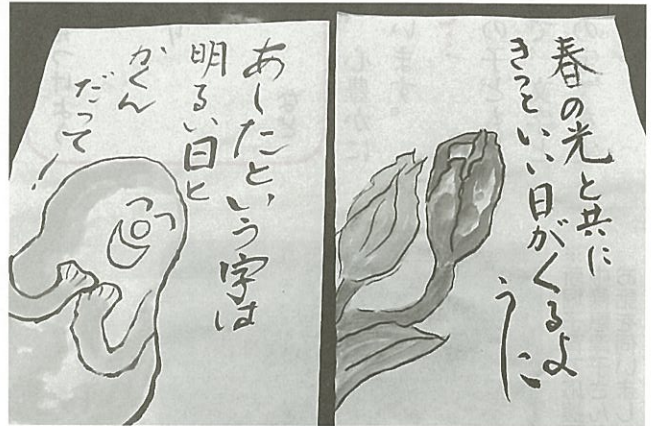 春の光と共に
きっといい日がくるよ
うに
あしたという字は
明るい日と
かくん
だって!